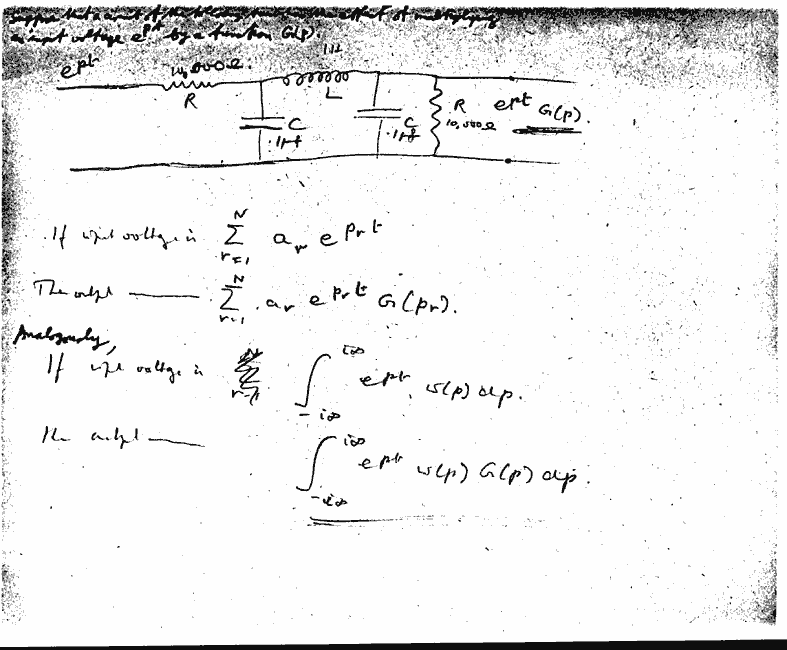 Suppose that a circuit of the following kind has the effect of multiplying
an input voltage e^{pt} by a function G(p).
e^{pt} 10,000Ω R 1H L C .1μf C .1μf R 10,000Ω e^{pt} G(p).
If input voltage is \sum_{r=1}^{N} a_r e^{p_r t}
The output —— \sum_{r=1}^{N} a_r e^{p_r t} G(p_r).
Analogously,
If input voltage is \int_{-i∞}^{i∞} e^{pt} w(p) dp.
The output —— \int_{-i∞}^{i∞} e^{pt} w(p) G(p) dp.